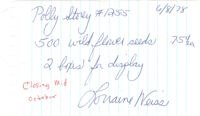 Polly Storey #1255 6/8/78
500 wild flower seeds 75¢ ea
2 boxes for display
Closing Mid
October
Lorraine Weiss